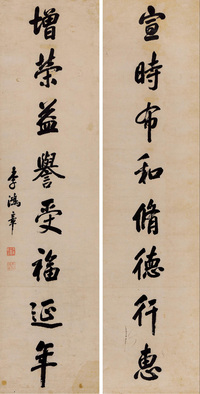 宣時布和脩德行惠
增榮益譽受福延年
李鴻章